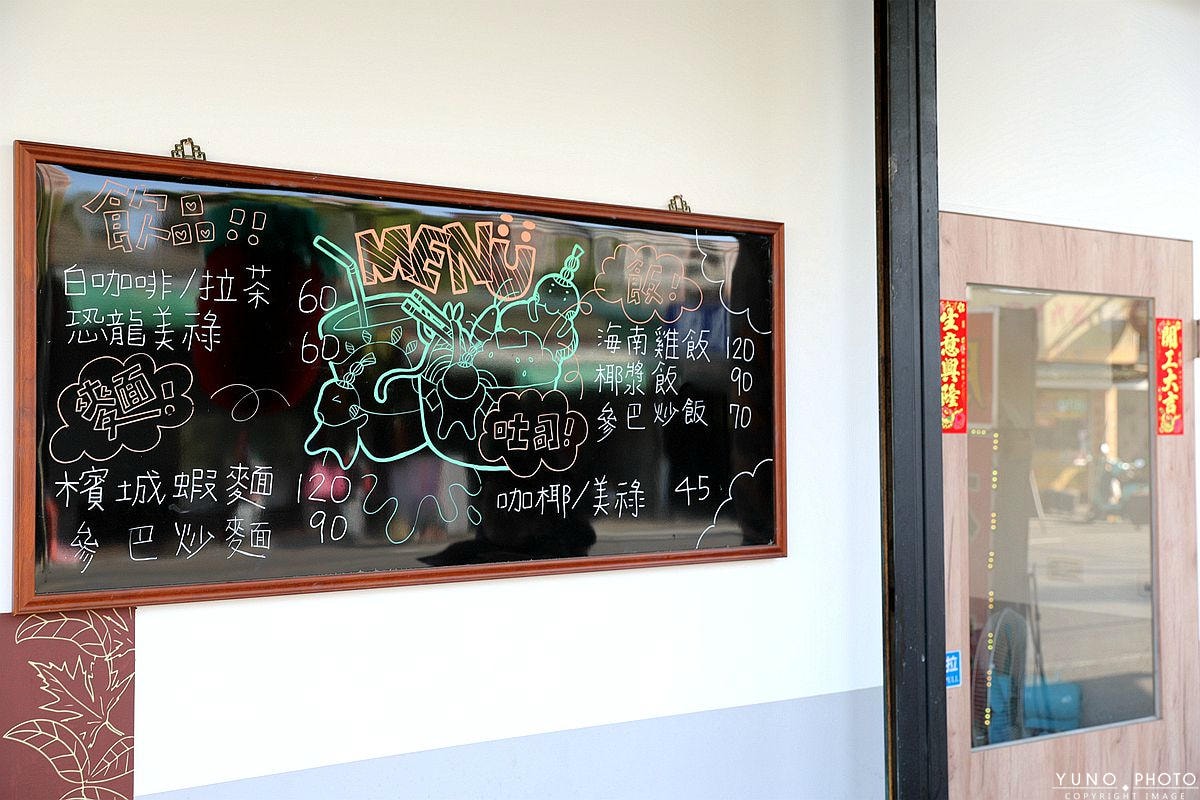 飲品!!
白咖啡/拉茶 60
恐龍美祿 60
麥麵!
檳城蝦麵 120
參巴炒麵 90
MENÜ
飯!
海南雞飯 120
椰漿飯 90
參巴炒飯 70
吐司!
咖椰/美祿 45
生意興隆
開工大吉
拉
PULL
YUNO PHOTO
COPYRIGHT IMAGE